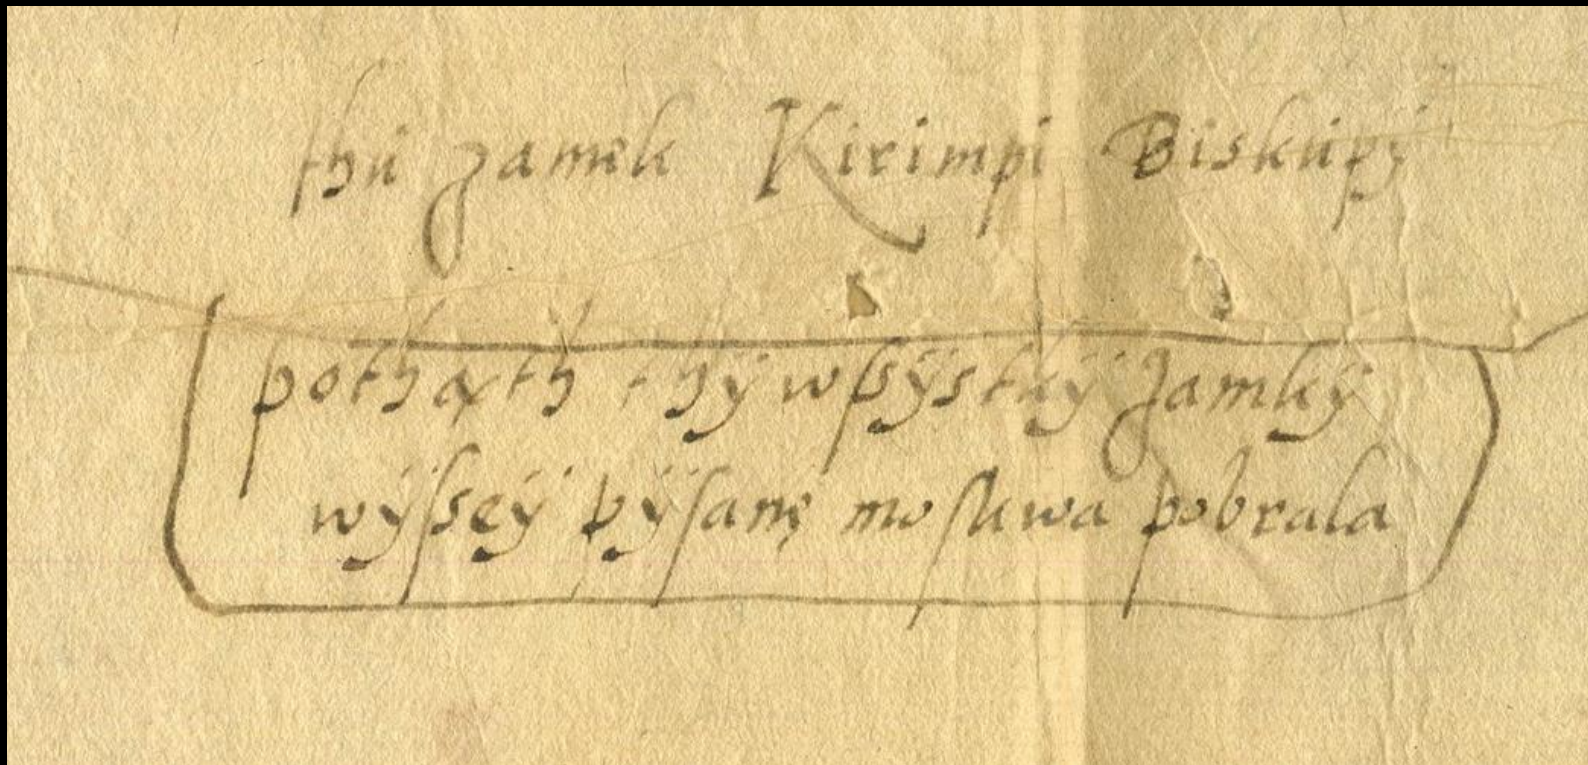 thu zamek Kirimpi Biskupÿ
pothąth thÿ wſsÿstkÿ zamkÿ
wÿſseÿ pÿſanę moſkwa pobrala